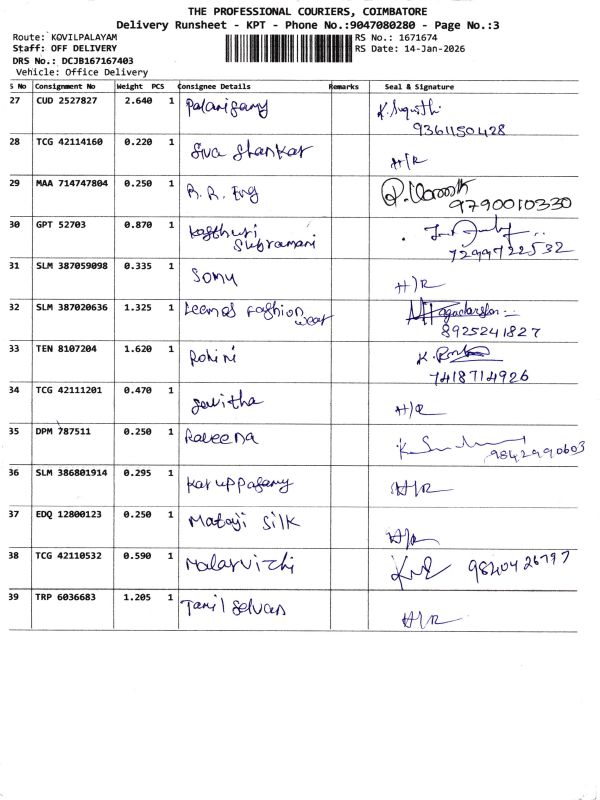 THE PROFESSIONAL COURIERS, COIMBATORE
Delivery Runsheet - KPT - Phone No.:9047080280 - Page No.:3
Route: KOVILPALAYAM
Staff: OFF DELIVERY
DRS No.: DCJB167167403
Vehicle: Office Delivery
RS No.: 1671674
RS Date: 14-Jan-2026
S No Consignment No Weight PCS Consignee Details Remarks Seal & Signature
27 CUD 2527827 2.640 1 Palanisamy
9361150428
28 TCG 42114160 0.220 1 Siva Shankar H/R
29 MAA 714747804 0.250 1 R. R. Eng
9790010330
30 GPT 52703 0.870 1 Kasthuri
Subramani
7299722532
31 SLM 387059098 0.335 1 Somu H/R
32 SLM 387020636 1.325 1 Leemas Fashion
wear
8925241827
33 TEN 8107204 1.620 1 Rohini
7418714926
34 TCG 42111201 0.470 1 Savitha H/R
35 DPM 787511 0.250 1 Raveena
9842990603
36 SLM 386801914 0.295 1 Karuppasamy H/R
37 EDQ 12800123 0.250 1 Mataji Silk H/R
38 TCG 42110532 0.590 1 Malarvizhi 9840426797
39 TRP 6036683 1.205 1 Tamil Selvan H/R